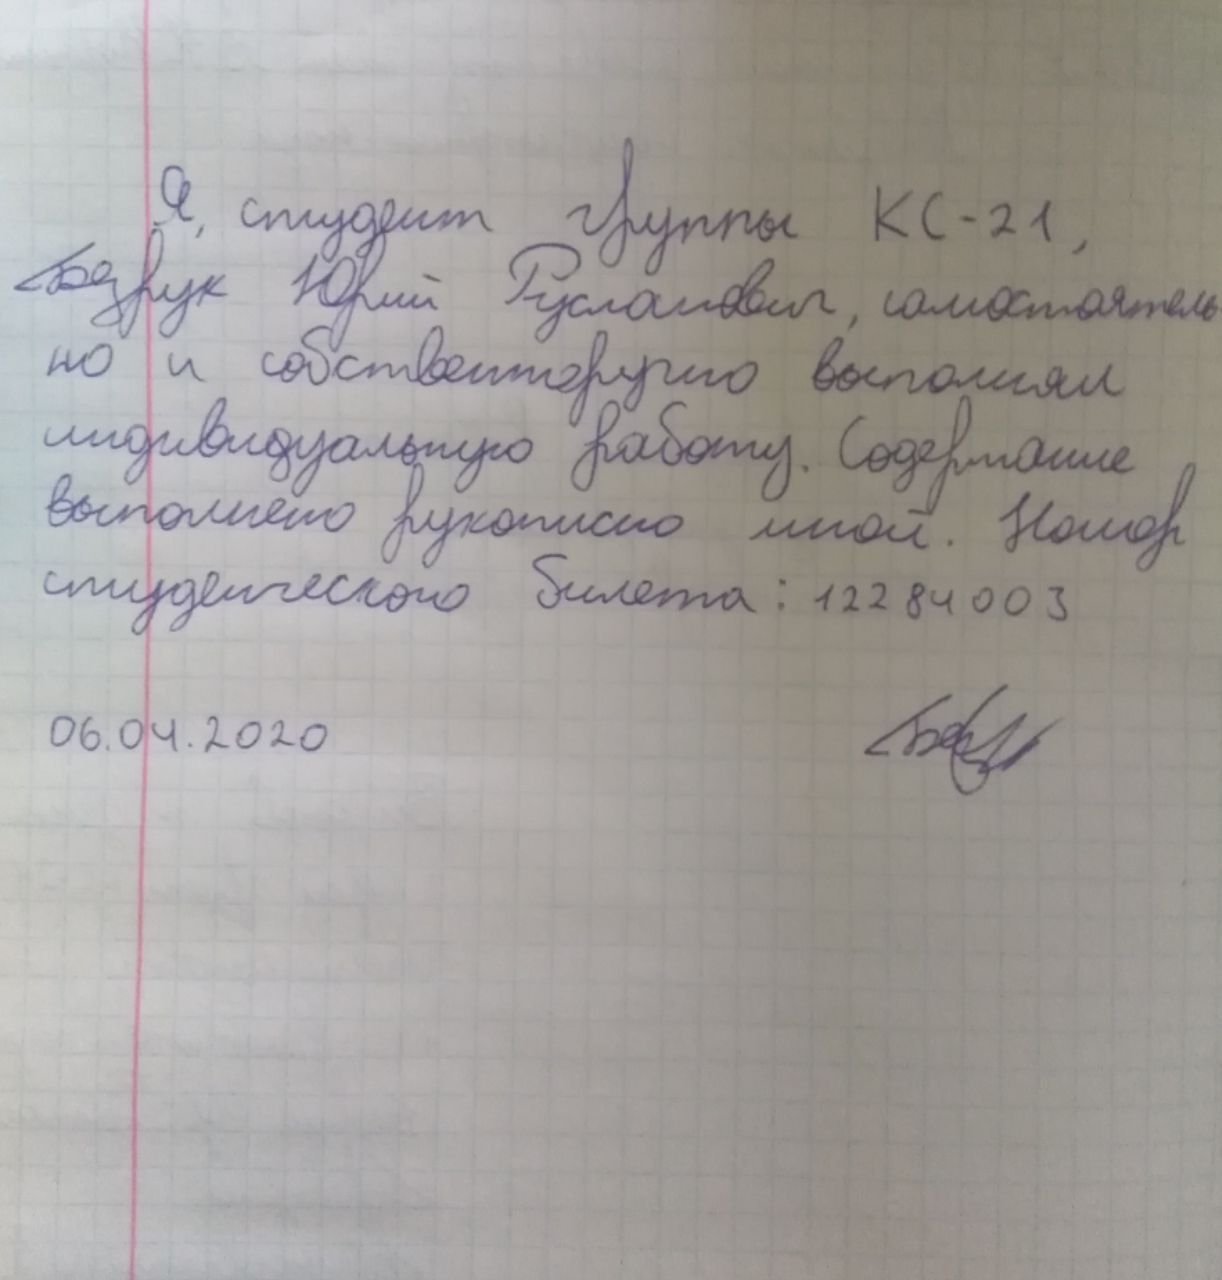 Я, студент группы КС-21,
Безрук Юрий Русланович, самостоятель
но и собственноручно выполнял
индивидуальную работу. Содержание
выполнено рукописно мной. Номер
студенческого билета: 12284003
06.04.2020